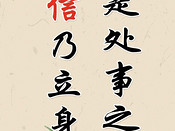 是处事之
信乃立身